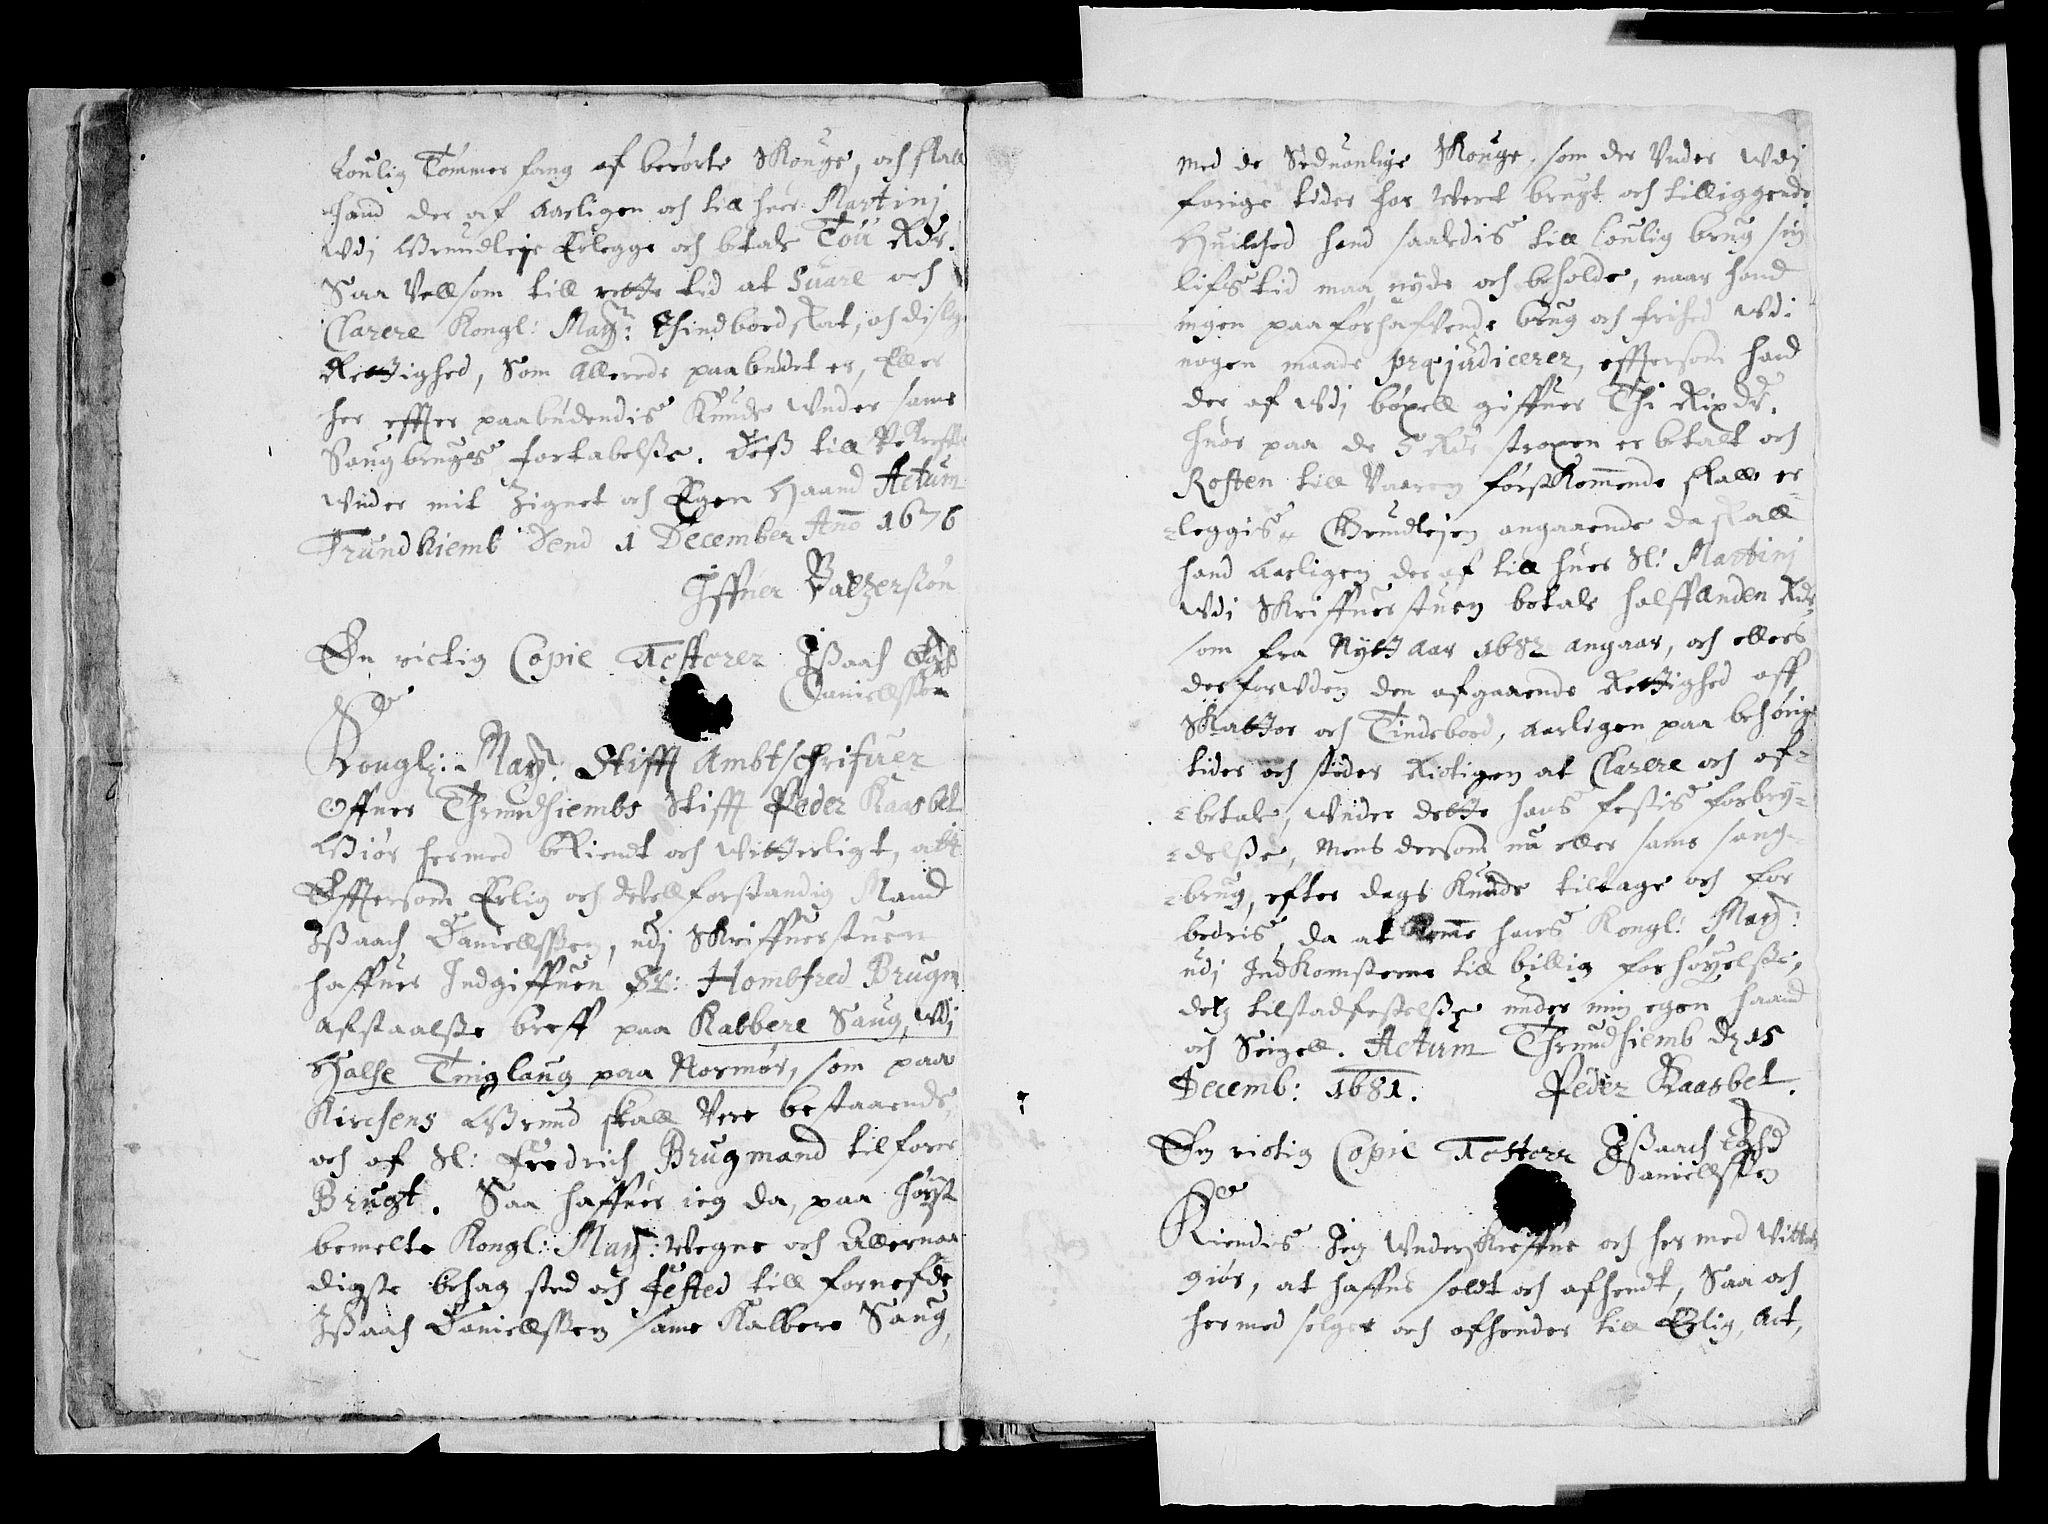 Loulig Tømmer fang af berørte Skouge, och skall
hand der af aarligen och till huer Martinj
wdj Grundleje Erlegge och betale Tou Rdr.
Saa Vell som till rette tid at Suare och
Clarere Kongl: May: Thindbord skat, och dislige
Rettighed, Som Allerede paabudet er, Eller
her effter paabudendis Kunde wnder same
Saugbrugs fortabelsse. Dess till Bekrefft
wnder mit Zignet och Egen Haand Actum
Trundhiemb Dend 1 December Ano 1676
Iffuer Baltzersøn
En rictig Copie Testerer Issach
Daniellssen
Kongl: May: Stifft Ambtschrifuer
Offuer Thrundhiembs Stifft Peder Kaasbøl
Giør hermed bekiendt och witterligt, att
Effttersom Erlig och Vellforstandig Mand
Issach Daniellssen, udj Skriffuerstuen
haffuer Indgiffuen Sl: Hombfred Brugm
afstaalsse breff paa Kalbere Saug, wdj
Halse Tinglaug paa Normør, som paa
Kirchens Grund skall Vere bestaaende,
och af Sl: Fredrich Brugmand tilforn
Brugt. Saa haffuer ieg da, paa høyst
bemelte Kongl: May: Wegne och Allernaa
digste behag sted och fested till fornefde
Issach Daniellssen same Kalbere Saug,
med de Seduonlige Skouge, som der Vnder wdj
forige tider har Verit brugt och tilliggende.
Huilched hand saaledis till loulig brug sin
lifs tid maa nyde och beholde, naar hand
ingen paaforhafvende brug och frihed wdi
nogen maade præjudicerer, efftersom hand
der af wdj bøxell giffuer Thi Rixdr.
huor paa de 5 Rdr straxen er betalt och
Resten till Vaaren førstkommende skall er-
leggis, Grundlejen angaaende da skall
hand Aarligen der af till huer Sl: Martinj
wdi Skriffuerstuen betale halffanden Rdr
som fra Nytt aar 1682 angaar, och ellers
der forwden den afgaaende Rettighed aff
Skatter och Tindebord, aarligen paa behørig
tider och steder Rictigen at Clarere och af-
betale, wnder dette hans festis forbry-
delsse, Mens dersom nu eller same saug-
brug, efter dags Kunde tiltage och for
bedris, da at komme hans Kongl: May:
udj Indkomsterne till billig forhøyelsse,
detz tilstadfestelsse under min egen haand
och Seigell. Actum Thrundhiemb dz 15
Decemb: 1681. Peder Kaasbøl.
En rictig Copie Testerer Issach
Daniellssen
Kiendis Jeg Vnderskreffne och her med Vitter
giør, at haffue soldt och afhendt, Saa och
hermed selger och afhender till Erlig, Act,